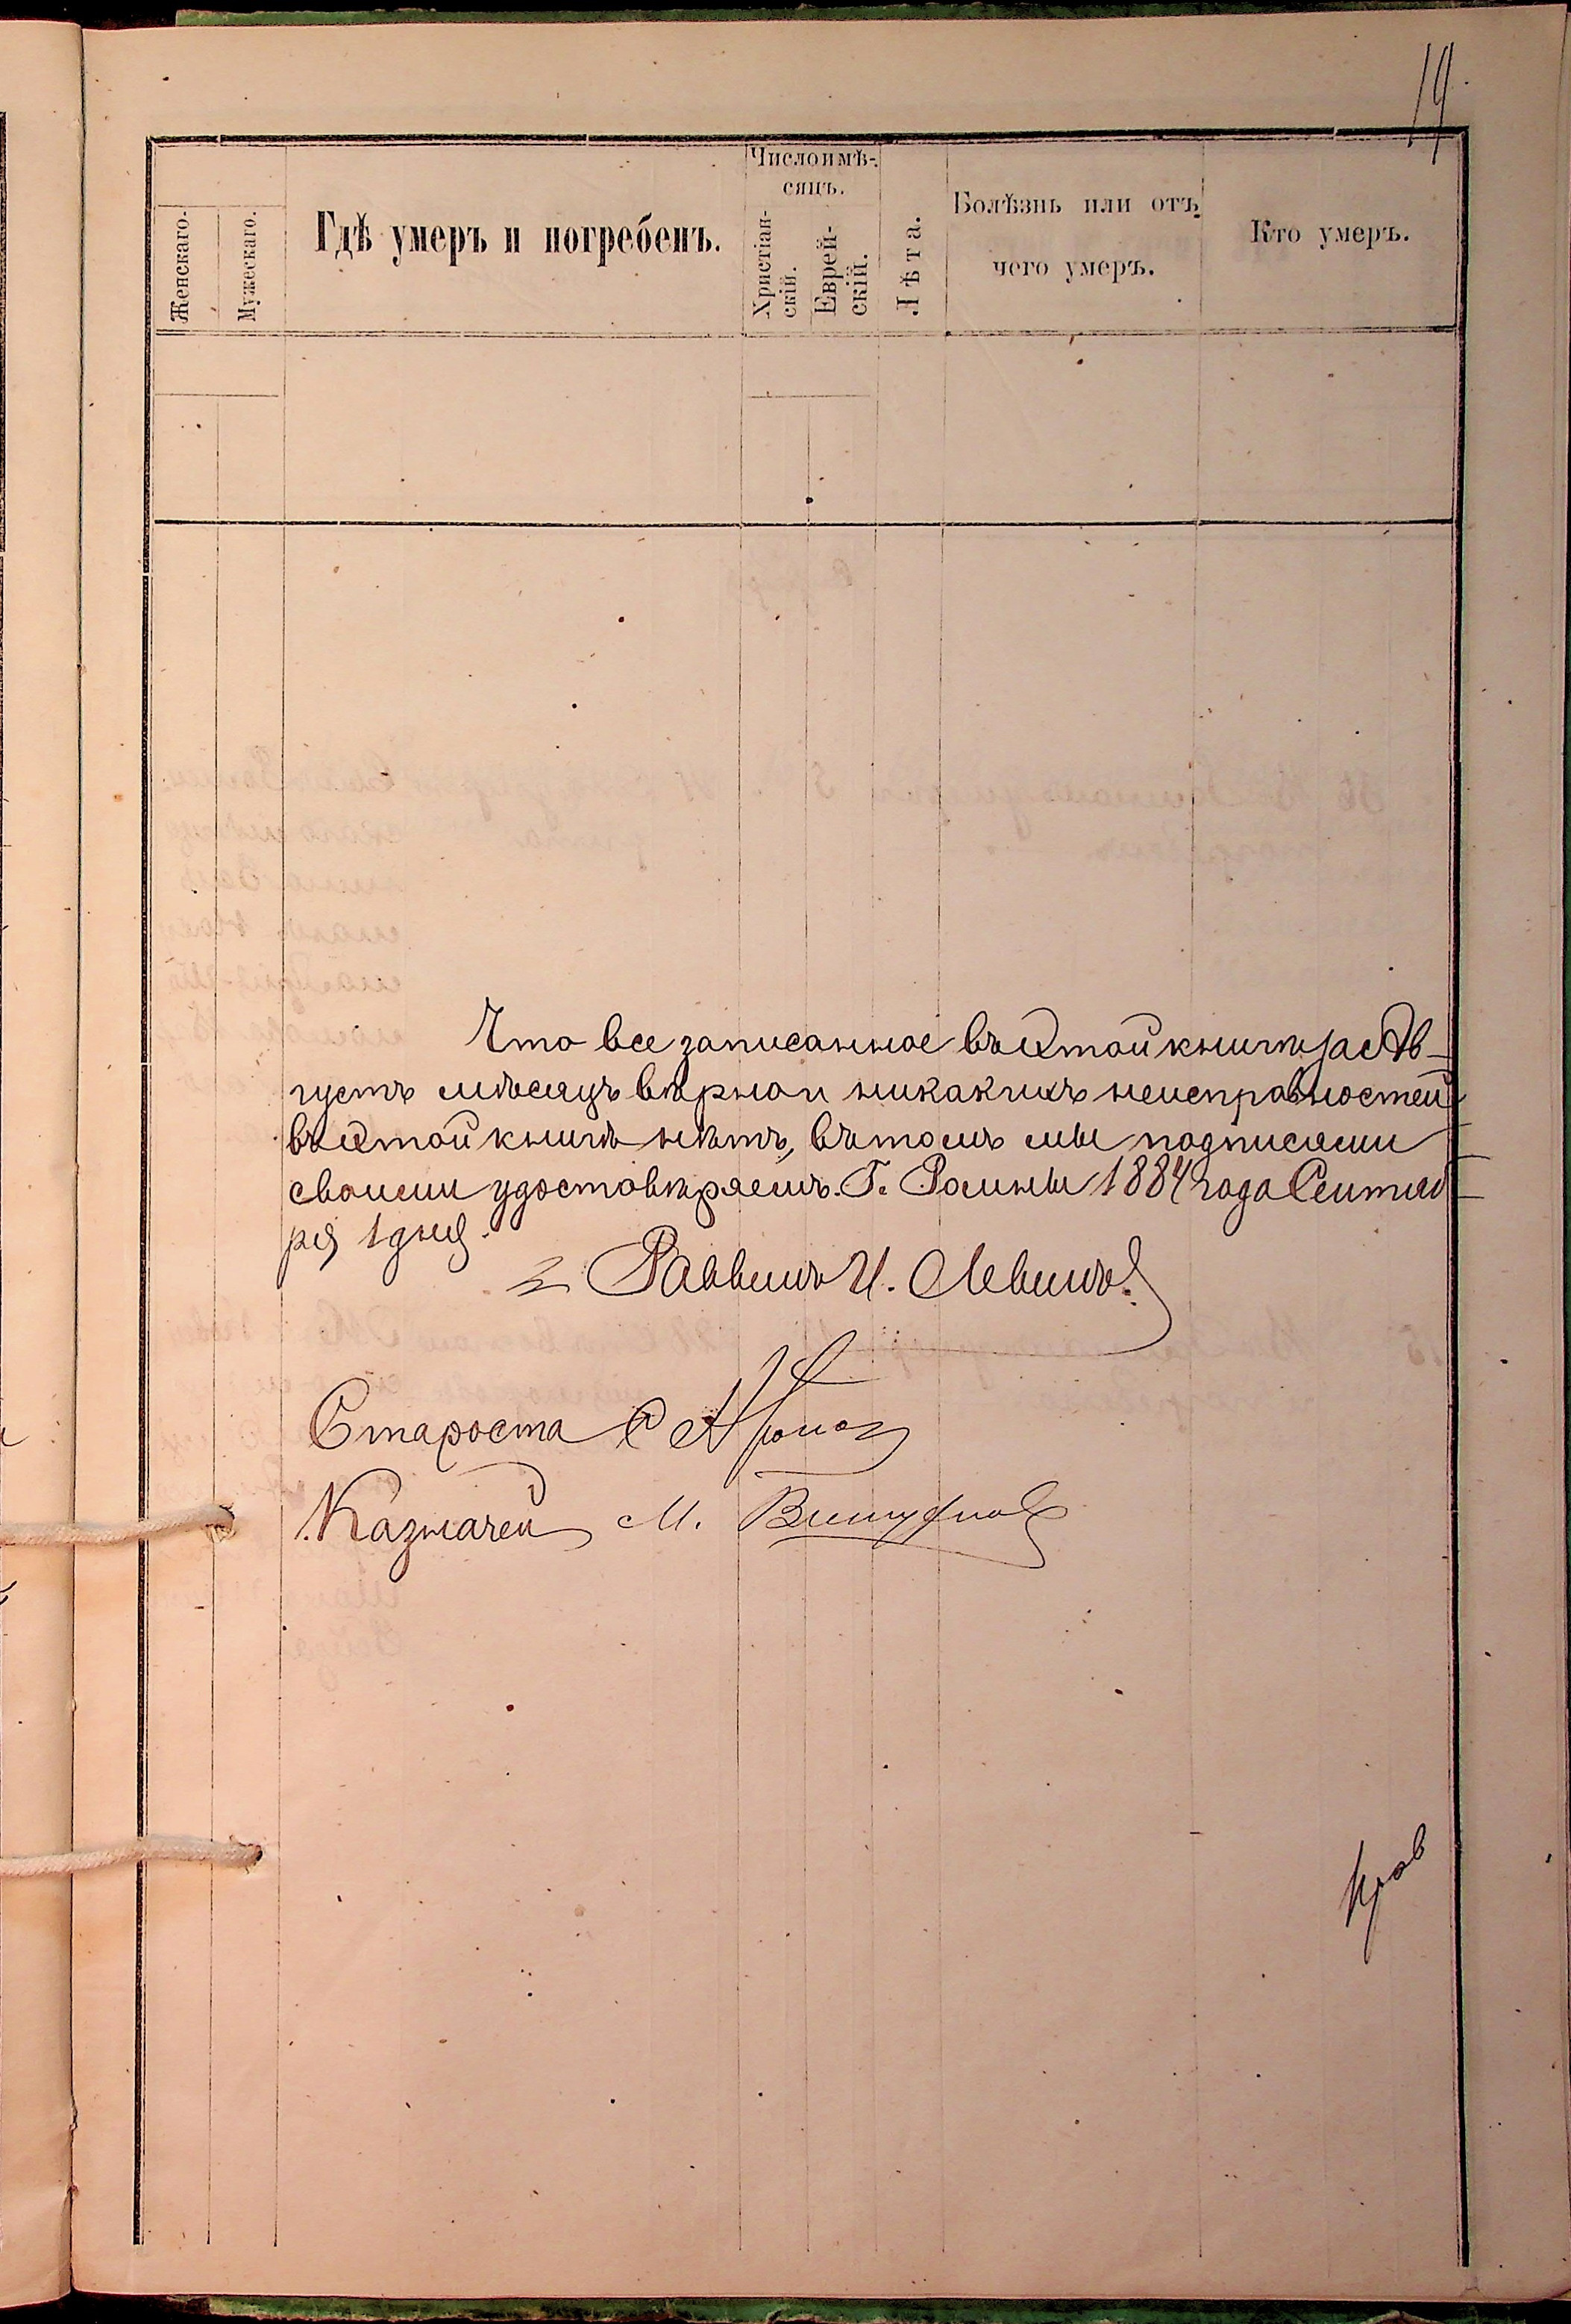 19
Числоимѣ-
сяцъ.
Женскаго.
Мужескаго.
Гдѣ умеръ и погребенъ.
Христіан-
скій.
Еврей-
скій.
Лѣта.
Болѣзнь или отъ
чего умеръ.
Кто умеръ.
Что все записанное въ этой книги за Ав-
густъ мѣсяцъ вѣрно и никакихъ неисправностей
въ этой книгѣ нѣтъ, въ томъ мы подписями
своими удостовѣряемъ. Г. Ромны 1884 года Сентяб
ря 1 дня.
Раввинъ И. Левинъ
Староста
Казначей М.